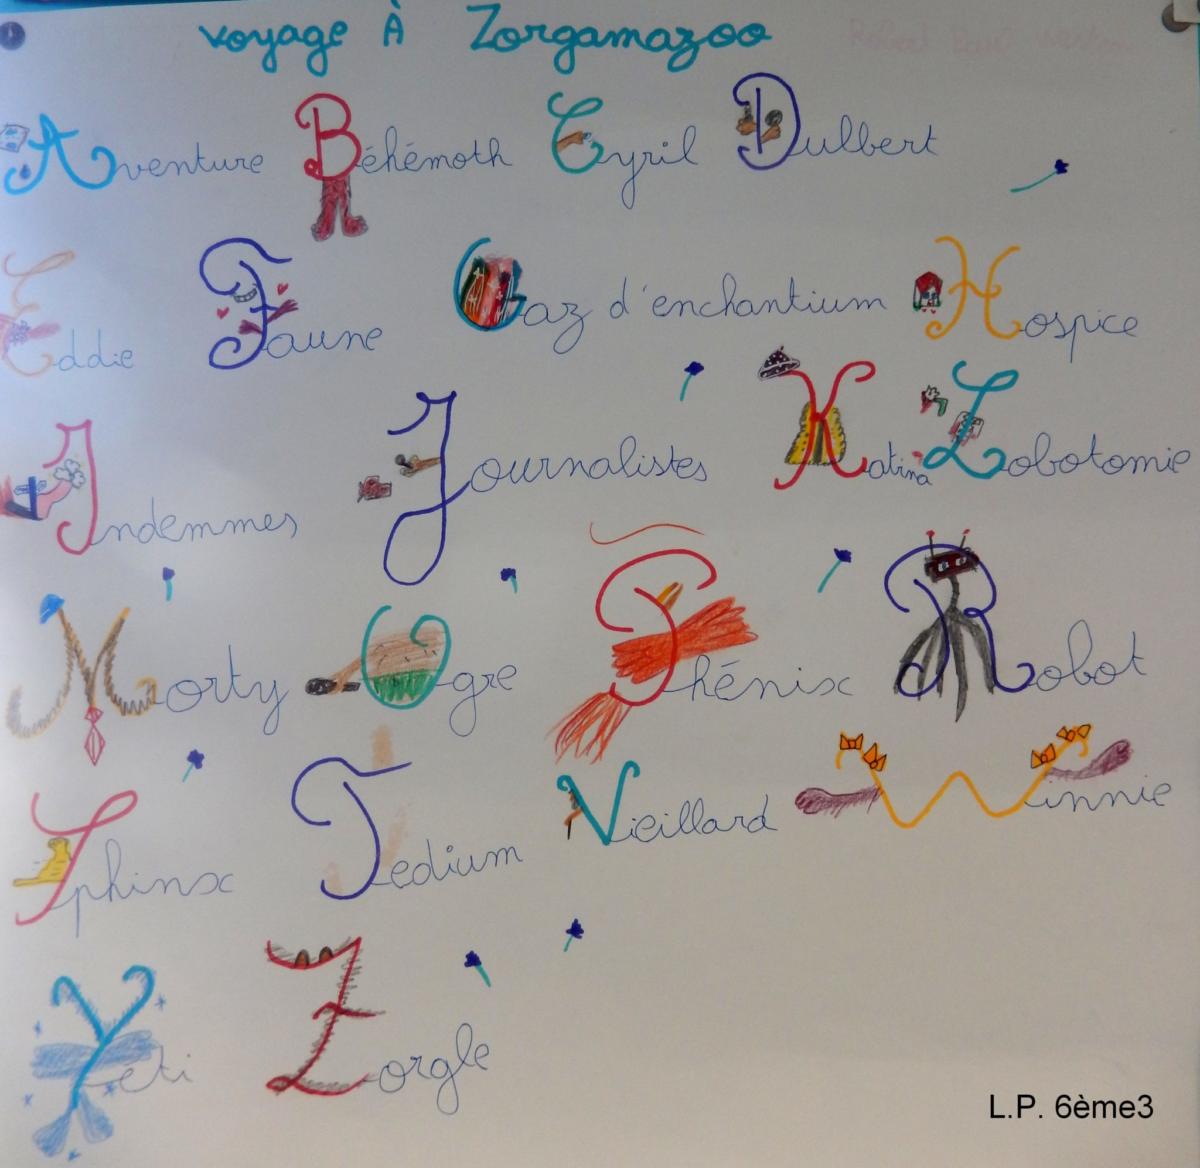 voyage À Zorgamazoo Robert Paul Weston
Aventure Béhémoth Cyril Dulbert
Eddie Faune Gaz d'enchantium Hospice
Indemmes Journalistes Katina Lobotomie
Morty Ogre Phénix Robot
Sphinx Tedium Vieillard Winnie
Yéti Zorgle
L.P. 6ème3